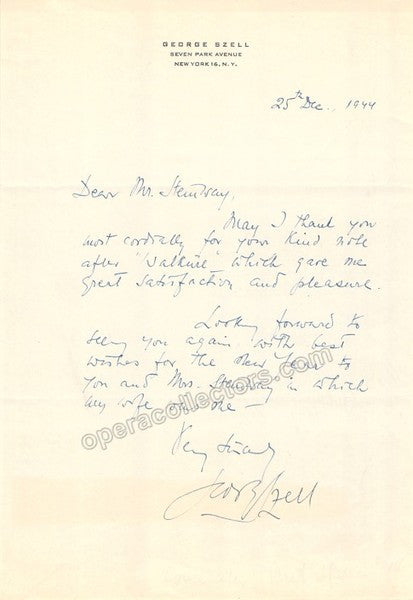 GEORGE SZELL
SEVEN PARK AVENUE
NEW YORK 16, N.Y.
25th Dec., 1944
Dear Mr. Steinway,
May I thank you
most cordially for your kind note
after "Walküre" which gave me
great satisfaction and pleasure.
Looking forward to
seeing you again with best
wishes for the New Year to
you and Mrs. Steinway in which
my wife
operacollectors.com
Very sincerely
George Szell